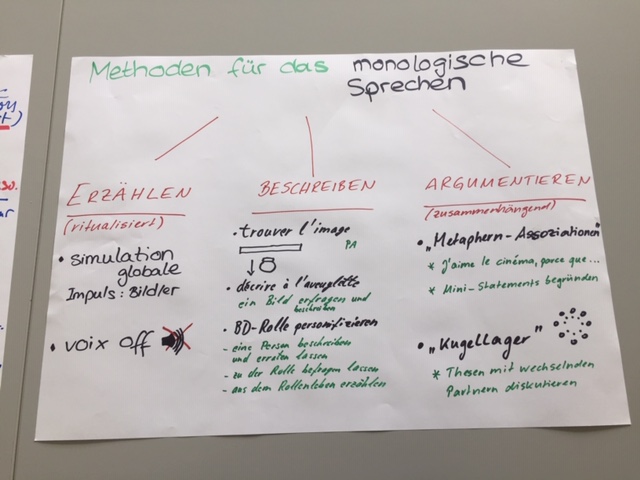 Methoden für das monologische
Sprechen
ERZÄHLEN
(ritualisiert)
• simulation
globale
Impuls: Bild/er
• voix off
BESCHREIBEN
• trouver l'image
PA
• décrire à l'aveuglette
ein Bild erfragen und
beschreiben
• BD-Rolle personifizieren
- eine Person beschreiben
und erraten lassen
- zu der Rolle befragen lassen
- aus dem Rollenleben erzählen
ARGUMENTIEREN
(zusammenhängend)
• "Metaphern-Assoziationen"
* J'aime le cinéma, parce que...
* Mini-Statements begründen
• "Kugellager"
* Thesen mit wechselnden
Partnern diskutieren